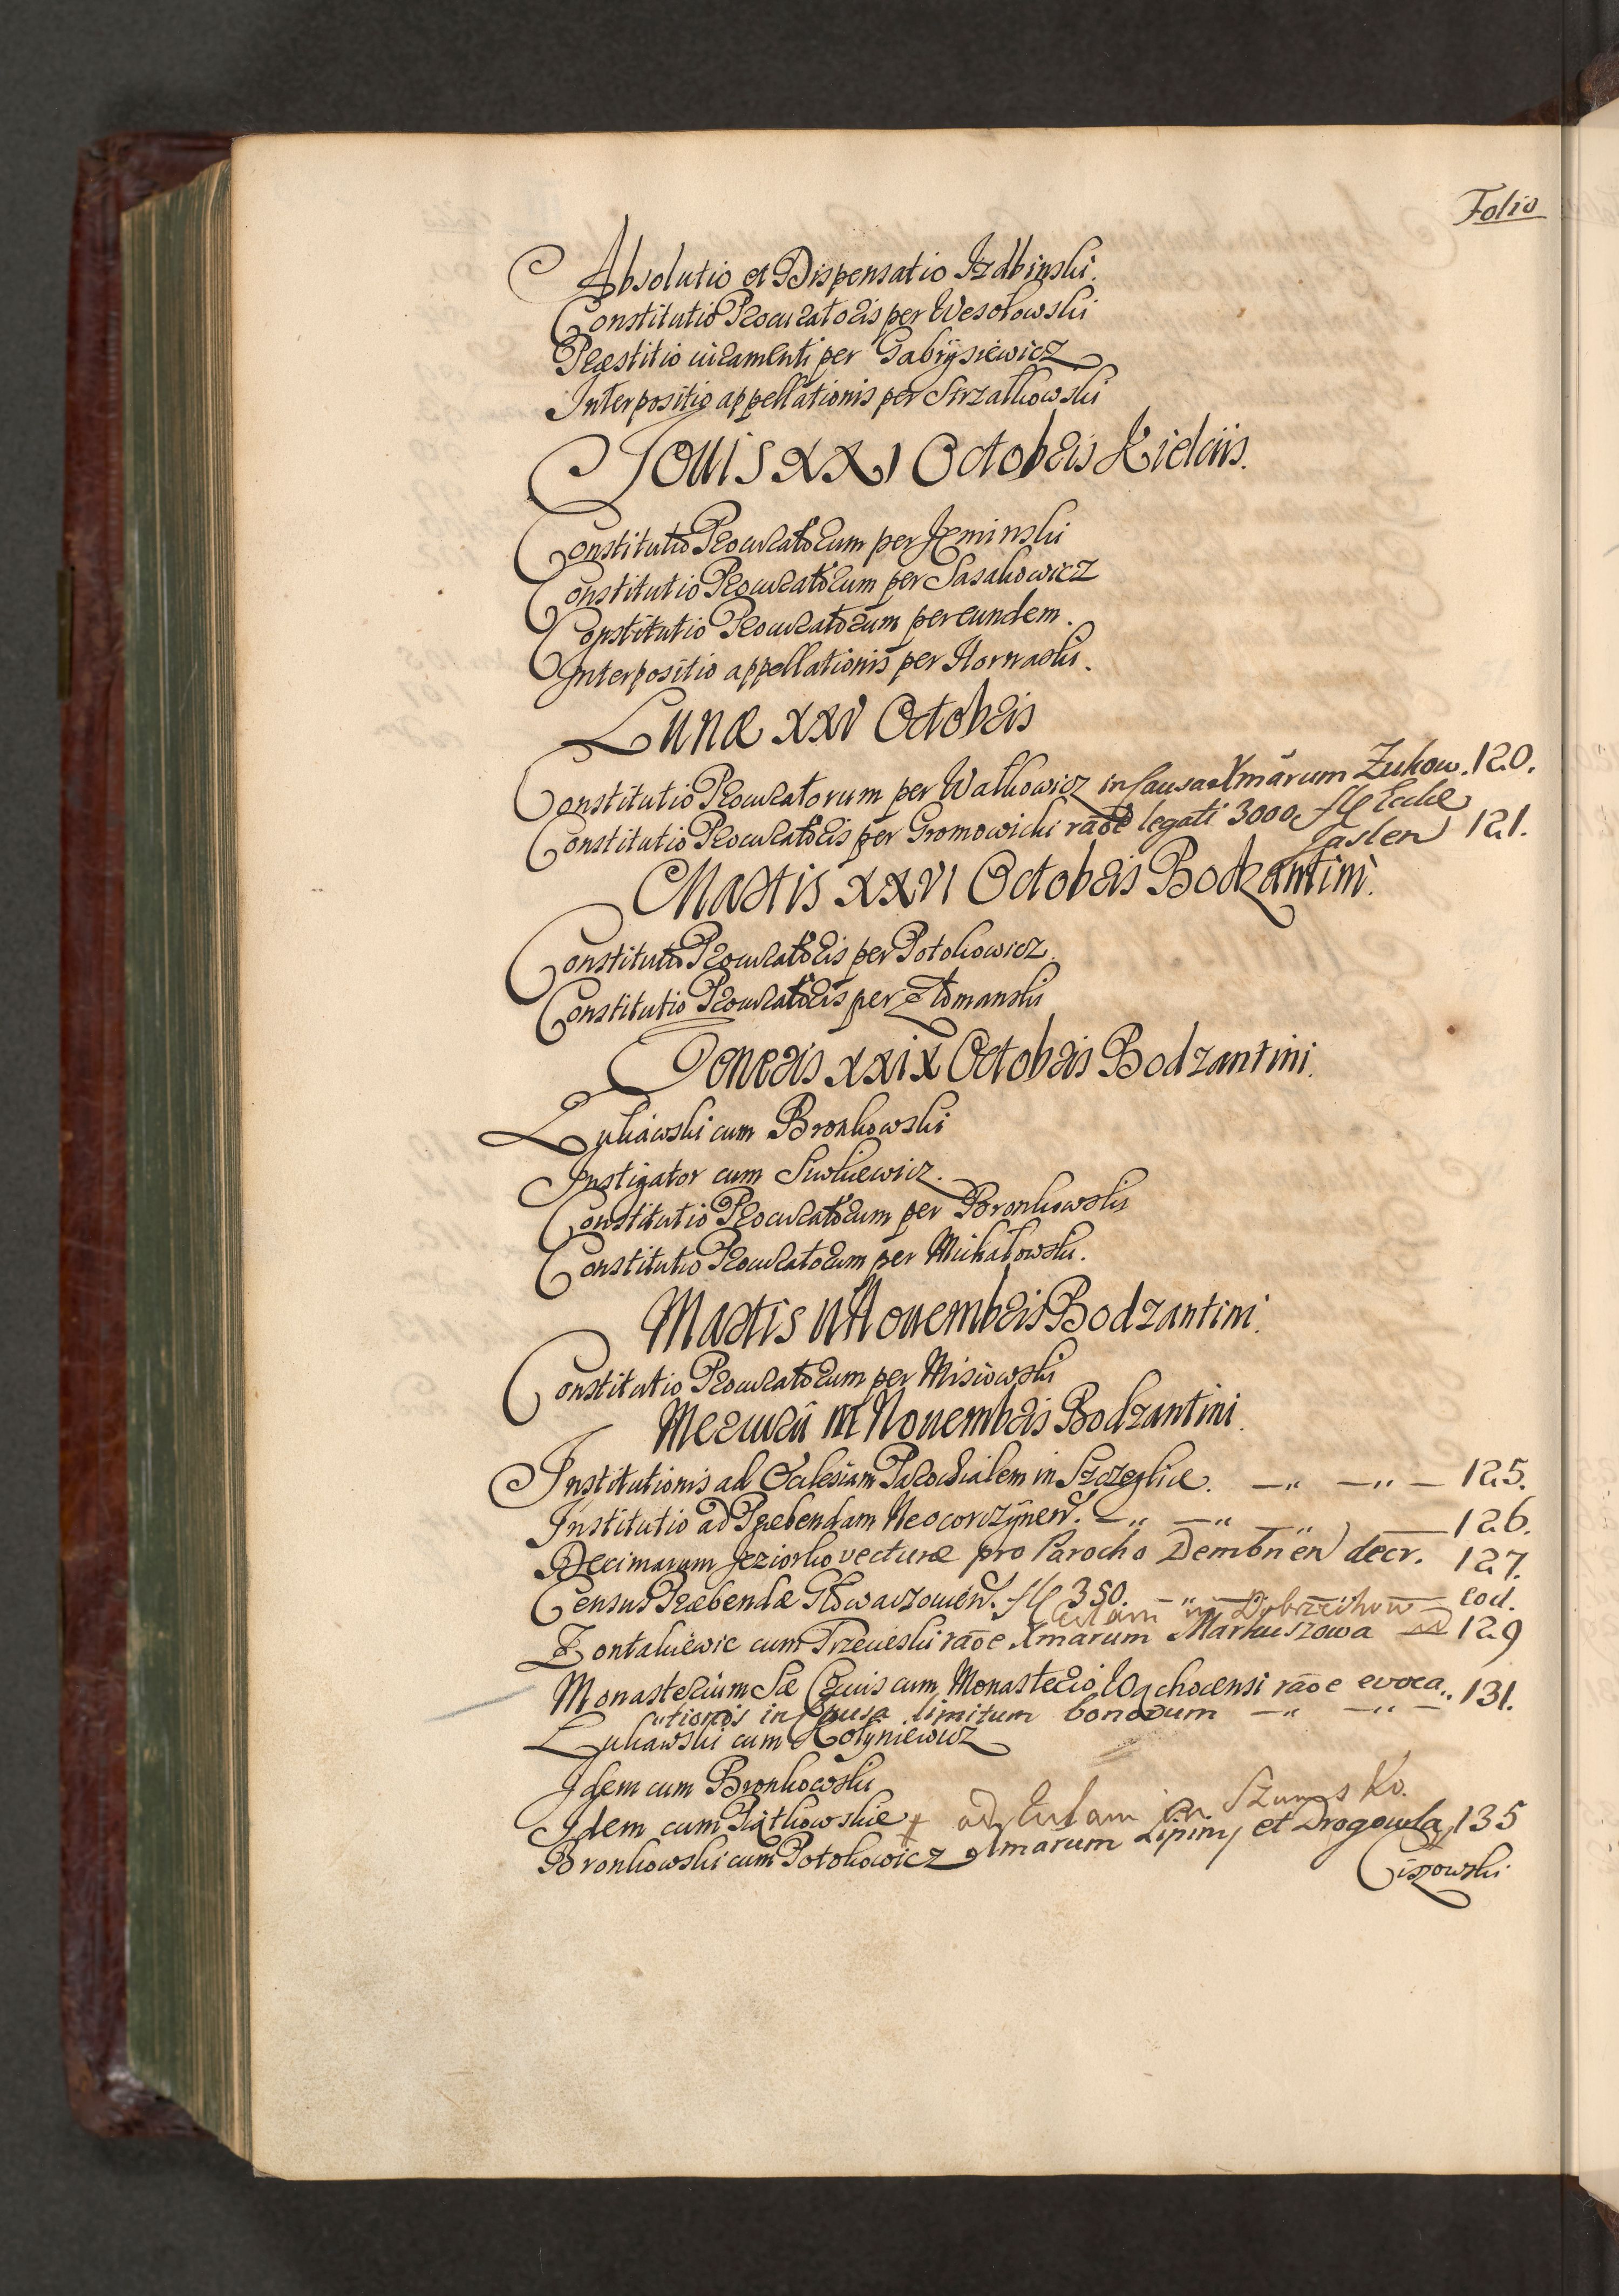 Folio
Absolutio et Dispensatio Izdbinski.
Constitutio Procuratoris per Wesołowski
Præstitio iuramenti per Gabrysiewicz
Interpositio appellationis per Strzałkowski
Iouis XXI Octobris Kielciis.
Constitutio Procuratorum per Jeminski
Constitutio Procuratorum per Sasakowicz
Constitutio Procuratorum per eundem.
Interpositio appellationis per
Lunæ XXV Octobris
Constitutio Procuratorum per Walkowicz in Causa Xmarum Zukow. 120.
Constitutio Procuratoris per Gromowicki raōe legati 3000 fl Eccle
Jaslen 121.
Martis XXVI Octobris Bodzantini.
Constitutio Procuratoris per Potokowicz.
Constitutio Procuratoris per Złomanski
Veneris XXIX Octobris Bodzantini.
Łukawski cum Bronkowski
Instigator cum
Constitutio Procuratorum per Bronkowski
Constitutio Procuratorum per Michałowski.
Martis II Nouembris Bodzantini.
Constitutio Procuratorum per Misiowski
Mercurii III Nouembris Bodzantini.
Institutionis ad Ecclesiam Parochialem in Szczeglice. —„ —„ — 125.
Institutio ad Præbendam Neocorczÿnen. —„ —„ — 126.
Decimarum Jeziorko vecturæ pro Parocho Dembnen decr. 127.
Census Præbendæ Głowaczowien. fl 350. —„— eod.
Eculam in Dobrzechow
Zontakiewic cum Trzecieski raōe Xmarum Markuszowa 129
Monasterium Stæ Crucis cum Monasterio Wąchocensi raōe evoca„ 131.
„tionis in Causa limitum bonorum —„ —„ —
Łukawski cum Hołyniewicz
Idem cum Bronkowski
Idem cum Piątkowskie ad Eculam in Szumsko.
Bronkowski cum Potokowicz Xmarum Lipiny et Drogowla, 135
Ciszowski